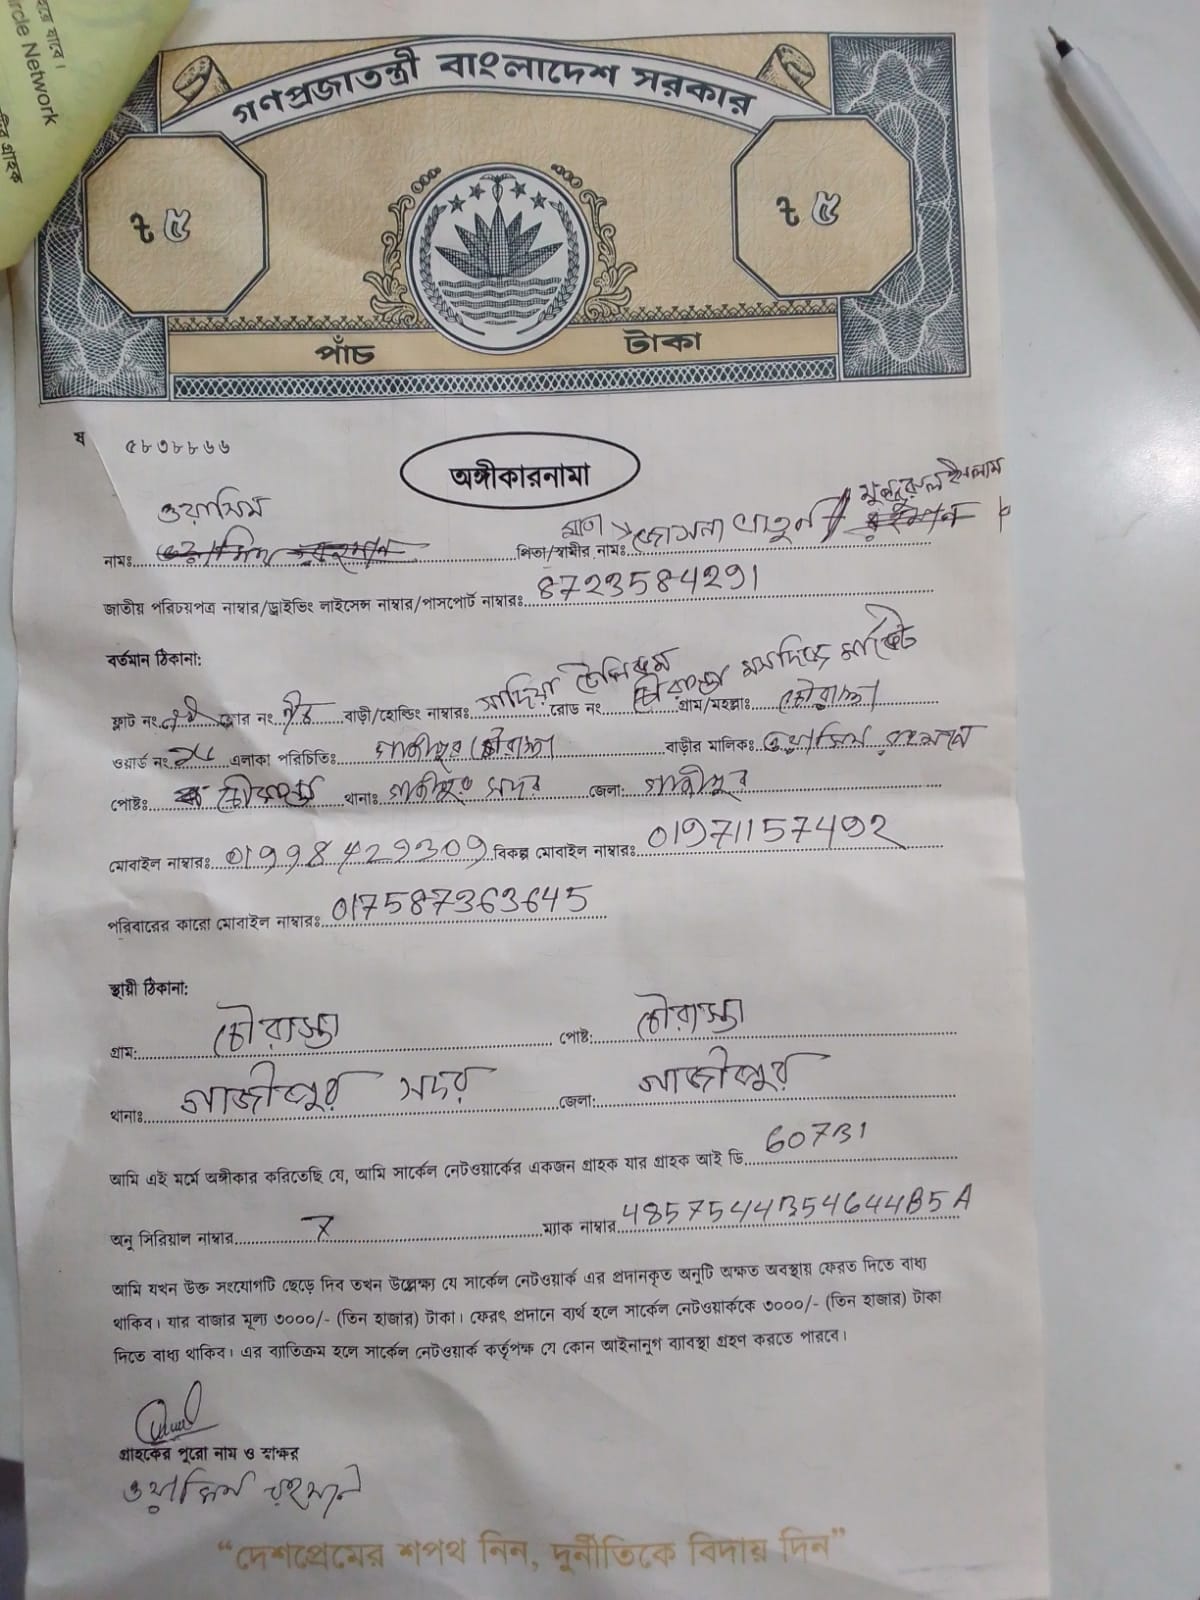 হয়ে যাবে।
ircle Network
গ্রাহক
গণপ্রজাতন্ত্রী বাংলাদেশ সরকার
৳ ৫ ৳ ৫
পাঁচ টাকা
ষ ৫৮৩৮৮৬৬
অঙ্গীকারনামা
ওয়াসিম
নামঃ ওয়াসিম রহমান পিতা/স্বামীর নামঃ মাতা জোসনা খাতুন // নুরুল ইসলাম রহমান
জাতীয় পরিচয়পত্র নাম্বার/ড্রাইভিং লাইসেন্স নাম্বার/পাসপোর্ট নাম্বারঃ 8723584291
বর্তমান ঠিকানা:
ফ্লাট নং ফ্লোর নং নীচ বাড়ী/হোল্ডিং নাম্বারঃ সাদিয়া টেলিকম রোড নং চৌরাস্তা মসজিদ মার্কেট গ্রাম/মহল্লাঃ চৌরাস্তা
ওয়ার্ড নং এলাকা পরিচিতিঃ গাজীপুর চৌরাস্তা বাড়ীর মালিকঃ ওয়াসিম রহমান
পোষ্টঃ চৌরাস্তা থানাঃ গাজীপুর সদর জেলা: গাজীপুর
মোবাইল নাম্বারঃ 01998429309 বিকল্প মোবাইল নাম্বারঃ 01971157492
পরিবারের কারো মোবাইল নাম্বারঃ 017587363645
স্থায়ী ঠিকানা:
গ্রাম: চৌরাস্তা পোষ্ট: চৌরাস্তা
থানাঃ গাজীপুর সদর জেলা: গাজীপুর
আমি এই মর্মে অঙ্গীকার করিতেছি যে, আমি সার্কেল নেটওয়ার্কের একজন গ্রাহক যার গ্রাহক আই ডি 60731
অনু সিরিয়াল নাম্বার X ম্যাক নাম্বার 48575443546444B5A
আমি যখন উক্ত সংযোগটি ছেড়ে দিব তখন উল্লেক্ষা যে সার্কেল নেটওয়ার্ক এর প্রদানকৃত অনুটি অক্ষত অবস্থায় ফেরত দিতে বাধ্য
থাকিব। যার বাজার মূল্য ৩০০০/- (তিন হাজার) টাকা। ফেরৎ প্রদানে ব্যর্থ হলে সার্কেল নেটওয়ার্ককে ৩০০০/- (তিন হাজার) টাকা
দিতে বাধ্য থাকিব। এর ব্যাতিক্রম হলে সার্কেল নেটওয়ার্ক কর্তৃপক্ষ যে কোন আইনানুগ ব্যাবস্থা গ্রহণ করতে পারবে।
গ্রাহকের পুরো নাম ও স্বাক্ষর
ওয়াসিম রহমান
“দেশপ্রেমের শপথ নিন, দুর্নীতিকে বিদায় দিন”